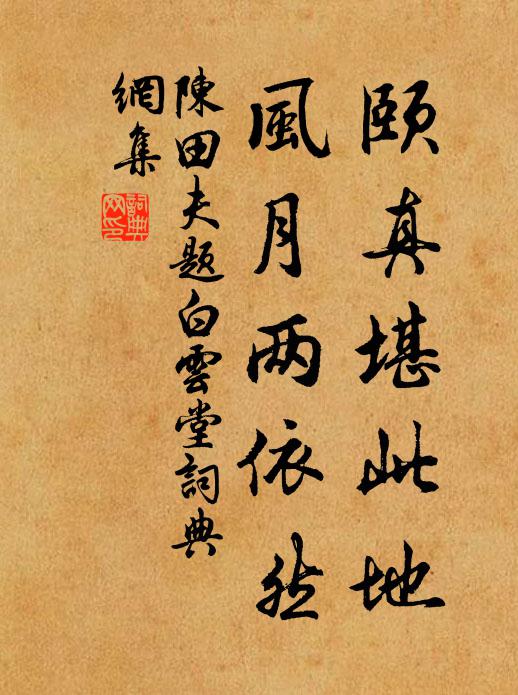 頤真堪此地
風月两依然
陳田夫題白雲堂詞典
網集
詞典
网印